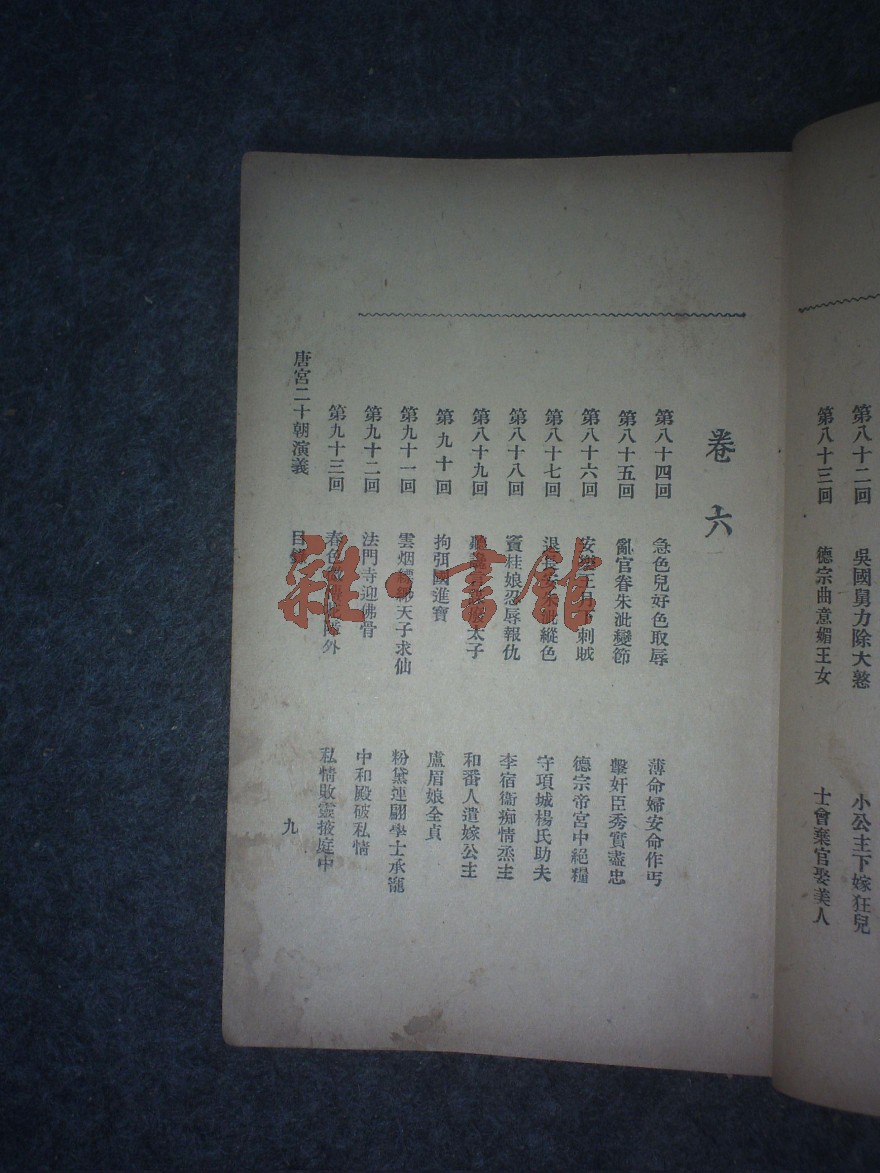 第八十二回 吳國舅力除大憝 小公主下嫁狂兒
第八十三回 德宗曲意媚王女 士會棄官娶美人
卷六
第八十四回 急色兒好色取辱 薄命婦安命作丐
第八十五回 亂官眷朱泚變節 擊奸臣秀實盡忠
第八十六回 刺賊 德宗帝宮中絕糧
第八十七回 朱泚縱色 守項城楊氏助夫
第八十八回 竇桂娘忍辱報仇 李宿衞痴情烝主
第八十九回 太子 和番人遣嫁公主
第九十回 拘弭國進寶 盧眉娘全貞
第九十一回 雲烟縹緲天子求仙 粉黛連翩學士承寵
第九十二回 法門寺迎佛骨 中和殿破私情
第九十三回 春色 外 私情敗露掖庭中
唐宮二十朝演義 目錄 九
雜·書館